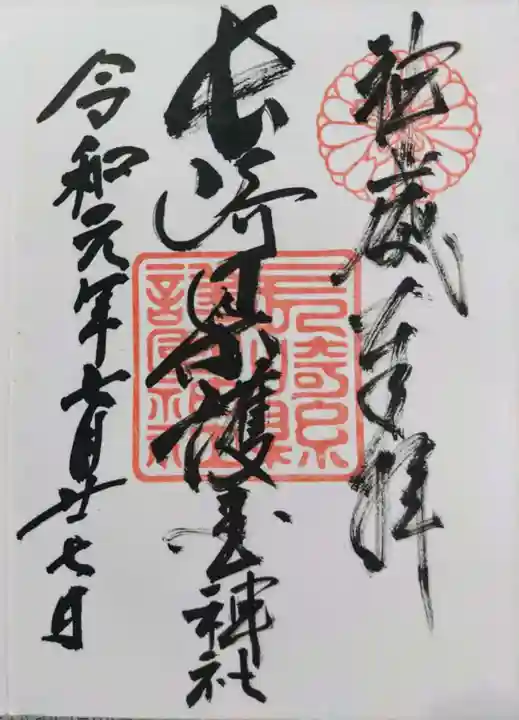 神威奉拝
長崎県護国神社
令和元年七月廿七日
長崎縣護國神社